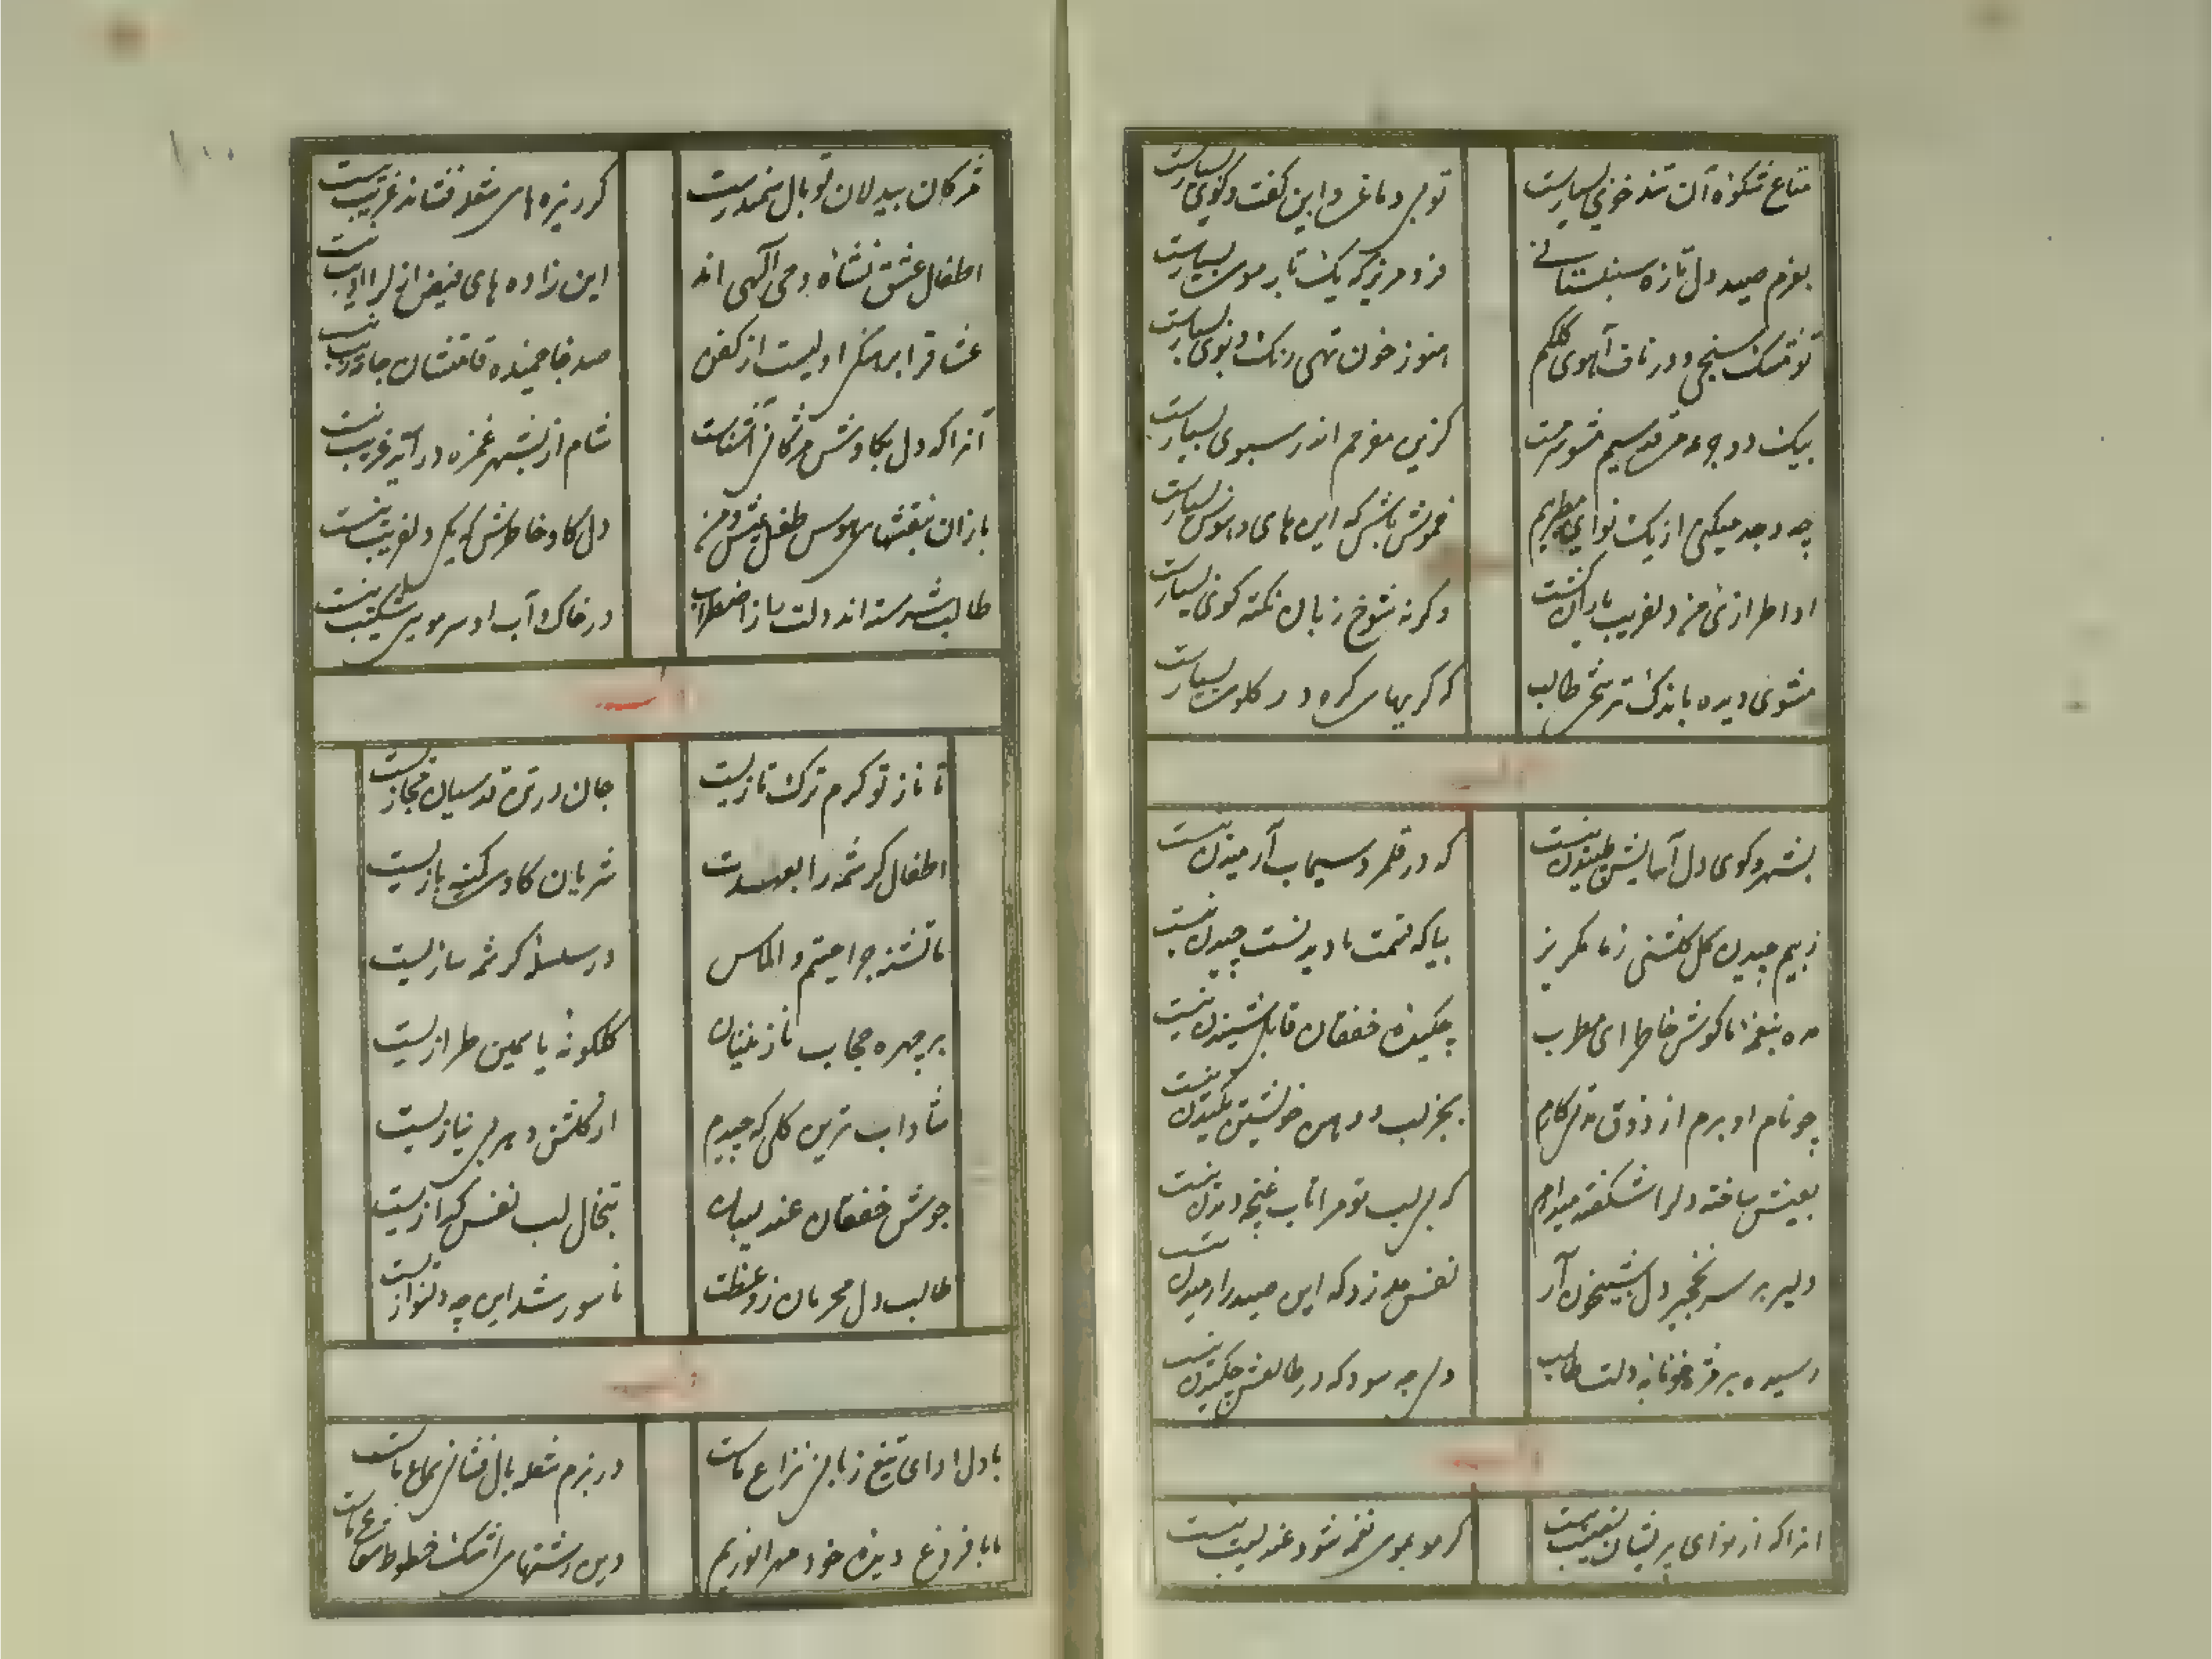 متاع شکوه آن تند خوی بسیارست
تو بی دماغی و این گفت و گوی بسیارست
بعزم صید دل تازه سنبلستانی
فرو مریز که یک تار موی بسیارست
تو مشک سنجی و در ناف آهوی کلکم
هنوز خون تهی رنگ و بوی بسیارست
بیک دو جرعه نسیم مشو سرمست
کزین می اندر سبوی بسیارست
چه وجد میکنی از یک نوای مطربم
خموش باش که این های و هوی بسیارست
ادا طرازی من دلفریب یاران گشت
وگرنه شوخ زبان نکته گوی بسیارست
مشوی دیده باندک ترشحی طالب
که گریهای گره در گلوی بسیارست
بشهر و کوی دل آسایش طپیدن نیست
که در قلمرو سیماب آرمیدن نیست
ز بیم چیدن گل گلشنی ز ما مگریز
بیا که قسمت ما دیدنست چیدن نیست
مده بنغمه ما گوش خاطر ای مطرب
چکیده خفقان قابل شنیدن نیست
چو نام او برم از ذوق کارم
بجز لب و دهن خویشتن مکیدن نیست
بعیش ساخته دل را شکفته میدارم
که بی لب تو مرا تاب غنچه دیدن نیست
دلیر بر سر نخچیر دل شبیخون آر
نفس مدزد که این صید را رمیدن نیست
رسیده بر مژه خونابه دلت طالب
ولی چه سود که در طالعش چکیدن نیست
آنرا که از نوای پریشان نصیب نیست
گر مو بموی نغمه شود عندلیب نیست
مژگان بیدلان تو بال سمندرست
گر ریزه های شعله فشاند غریب نیست
اطفال عشق نشاه می آگهی اند
این زاده های فیض ازل را ادیب نیست
عشاق را اولیست از کفن
صد جا خمیده قامتشان جامه زیب نیست
آنرا که دل بکاوش مژگانی آشناست
شام ار بشهر غمزه درآید غریب نیست
بازان بنقشهای هوس طفل عیش و من
دل کاو خاطرش که یکی دلفریب نیست
طالب سرشته اند دلت را ز اضطراب
در خاک و آب او سر مویی شکیب نیست
تا ناز تو گرم ترک تازیست
جان در تن قدسیان مجازیست
اطفال کرشمه را
شریان کاوی کمینه بازیست
ما تشنه جراحتیم و الماس
در سلسله کرشمه سازیست
بر چهره حجاب نازنینان
گلگونه یاسمین طرازیست
شاداب ترین گلی که چیدم
از گلشن دهر بی نیازیست
جوش خفقان عندلیبان
تبخال لب نفس گدازیست
طالب دل محرمان ز وعظت
ناسور شد این چه دلنوازیست
با دل ادای تیغ زبانی نزاع ماست
در بزم شعله بال فشانی سماع ماست
ما با فروغ دیده خود مهر انوریم
وین رشتهای اشک خطوط شعاع ماست
۱۰۰